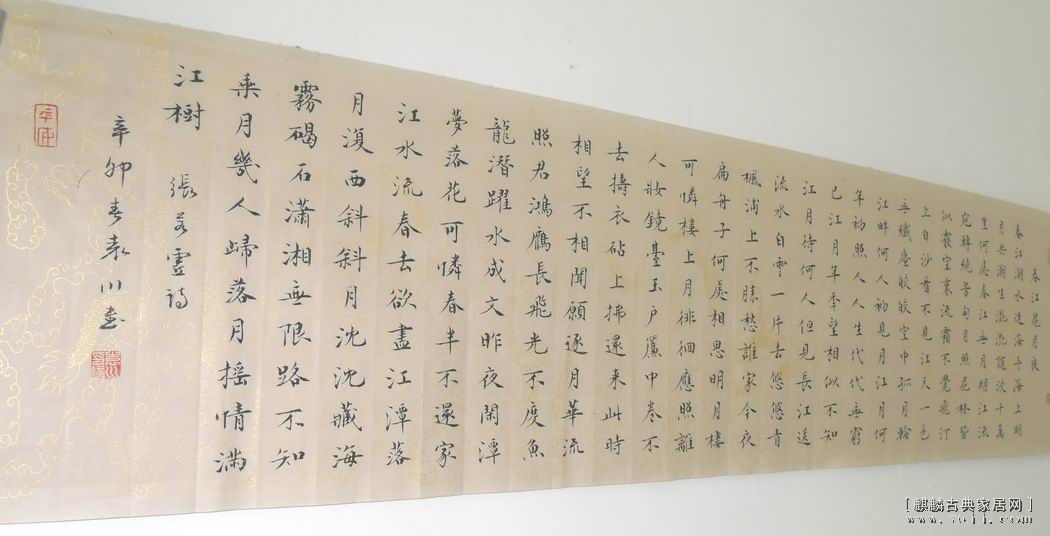 春江花月夜
春江潮水連海平海上明
月共潮生灩灩隨波千萬
里何處春江無月明江流
宛轉繞芳甸月照花林皆
似霰空裏流霜不覺飛汀
上白沙看不見江天一色
無纖塵皎皎空中孤月輪
江畔何人初見月江月何
年初照人人生代代無窮
已江月年秊望相似不知
江月待何人但見長江送
流水白雲一片去悠悠青
楓浦上不勝愁誰家今夜
扁舟子何處相思明月樓
可憐樓上月徘徊應照離
人妝鏡臺玉戶簾中卷不
去擣衣砧上拂還来此時
相望不相聞願逐月華流
照君鴻鴈長飛光不度魚
龍潛躍水成文昨夜閑潭
夢落花可憐春半不還家
江水流春去欲盡江潭落
月復西斜斜月沈沈藏海
霧碣石瀟湘無限路不知
乗月幾人歸落月搖情滿
江樹 張若虛詩
辛卯春袁川書
[麒麟古典家居网]